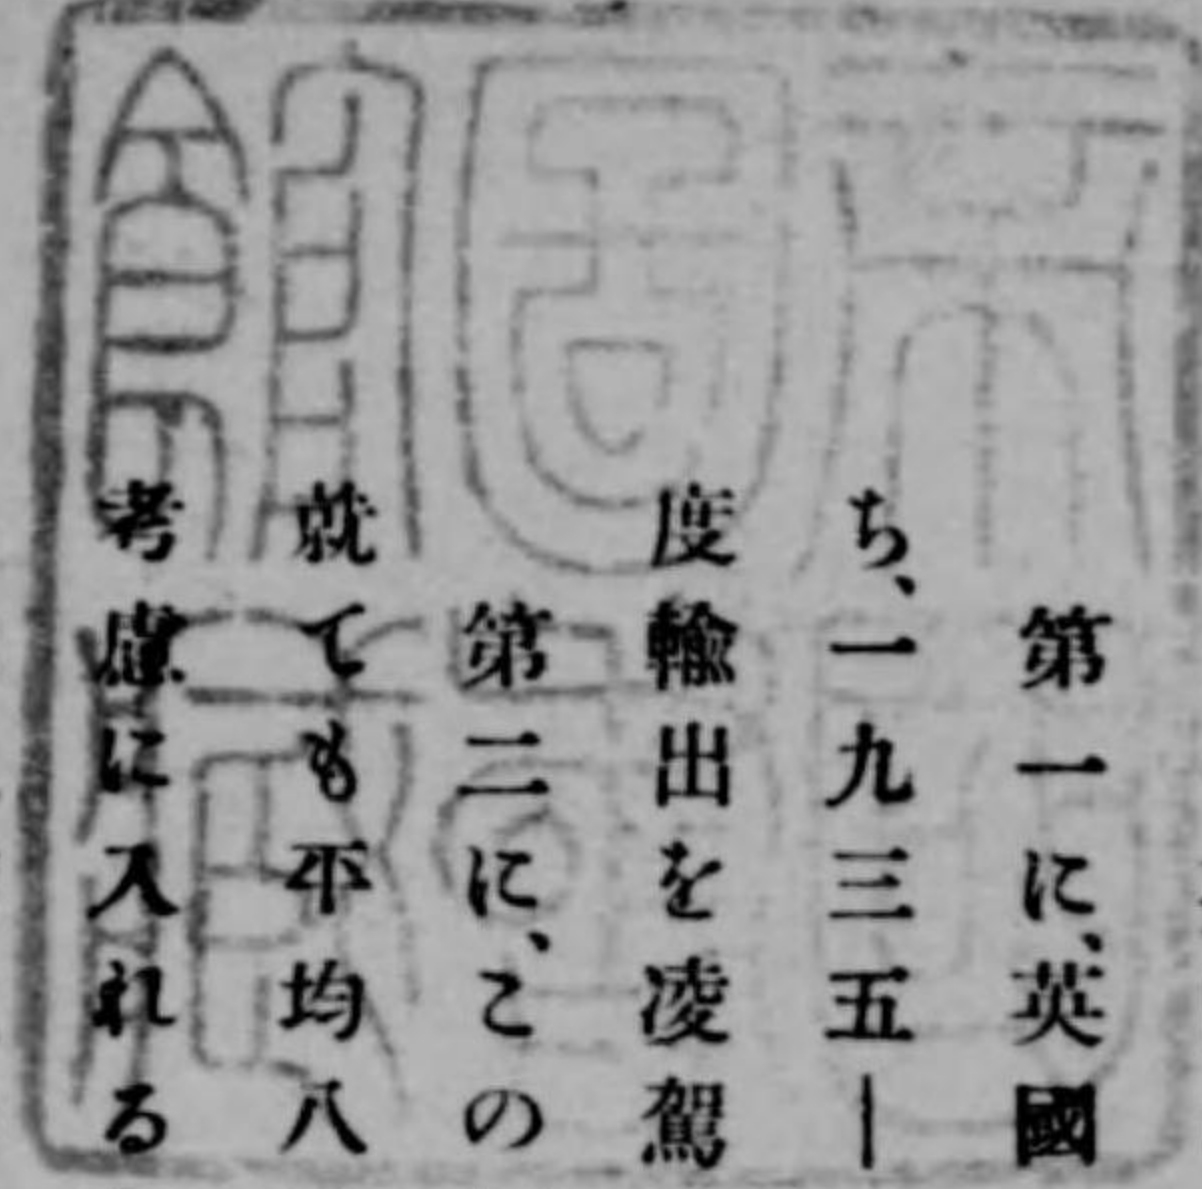 第一に、英國
ち、一九三五―
度輸出を凌駕
第二に、この
就ても平均八
考慮に入れる